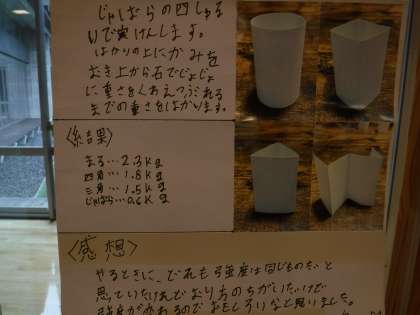 じゃばらの四しゅる
いで実けんします。
はかりの上にかみを
おき上から石でじょじょ
に重さをくわえつぶれる
までの重さをはかります。
〈結果〉
まる…2.3kg
四角…1.8kg
三角…1.5kg
じゃばら…0.6kg
〈感想〉
やるときに、どれも強度は同じものだと
思っていたけれどおり方のちがいだけで
強度が変わるのでおもしろいなと思いました。